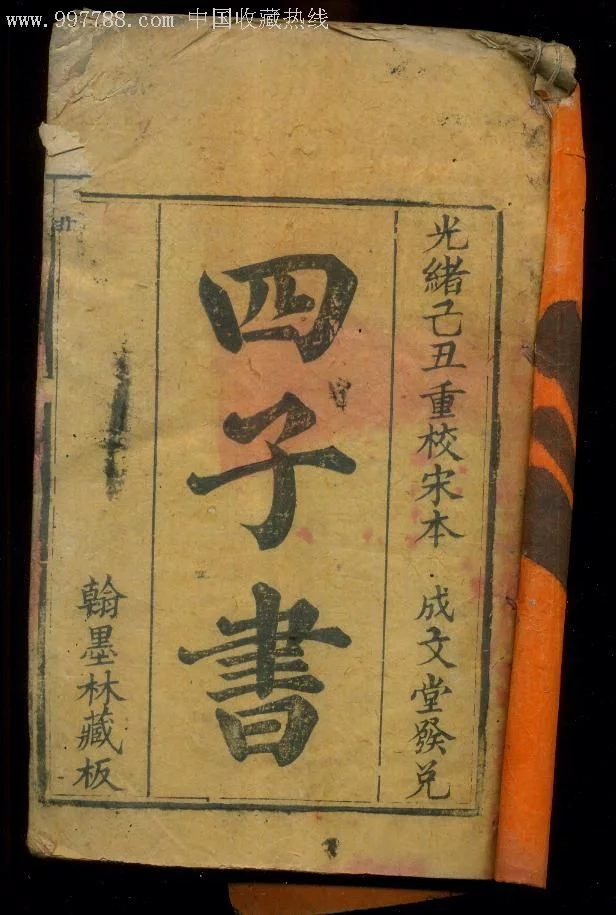 www.997788.com 中国收藏热线
光緒己丑重校宋本 成文堂發兑
四子書
翰墨林藏板